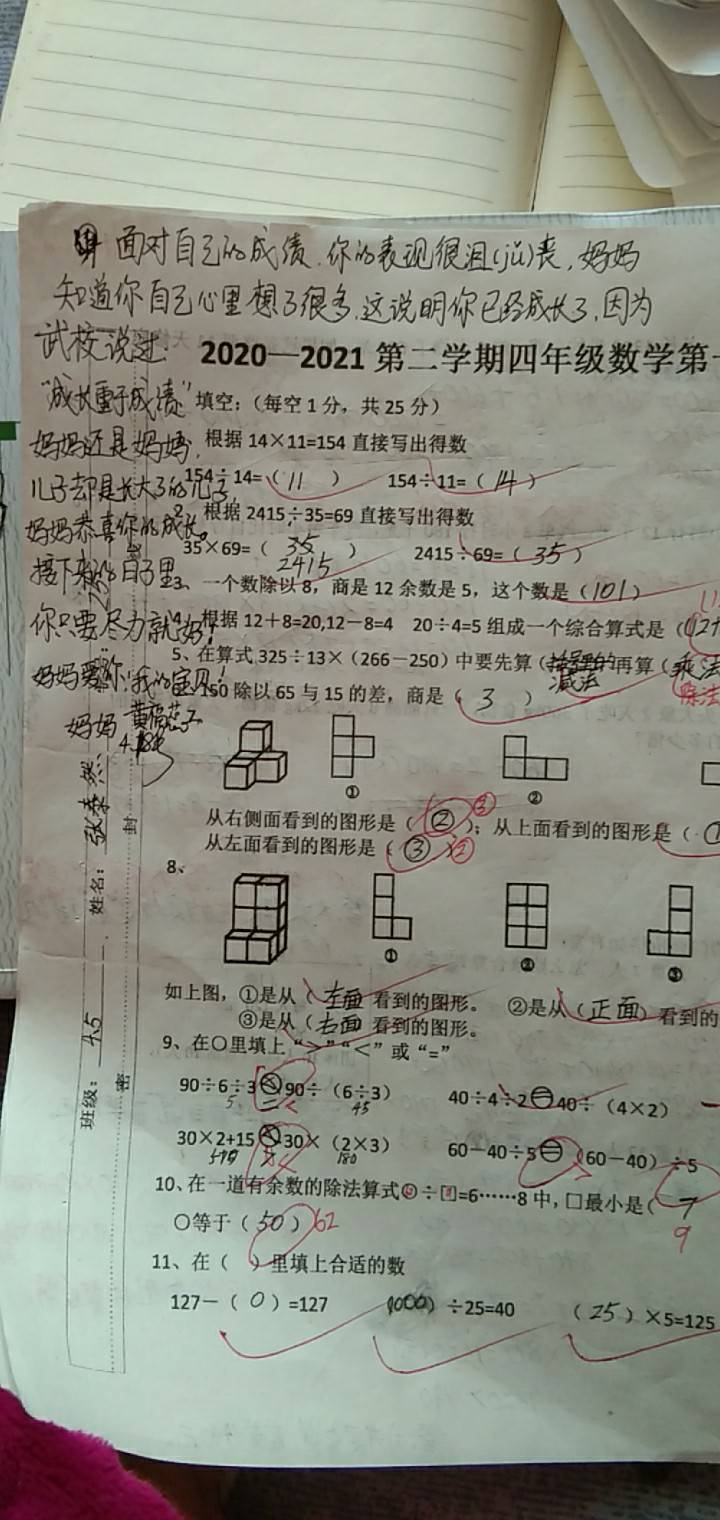 面对自己的成绩，你的表现很沮(jǔ)丧，妈妈
知道你自己心里想了很多，这说明你已经成长了，因为
武校说过：
"成长重于成绩"
妈妈还是妈妈，
儿子却是长大了的儿子，
妈妈恭喜你的成长。
接下来的日子里
你只要尽力就好！
妈妈爱你！我的宝贝！
妈妈
2020—2021第二学期四年级数学第
填空：（每空1分，共25分）
根据14×11=154直接写出得数
154÷14=（11）  154÷11=（14）
2、根据2415÷35=69直接写出得数
35×69=（2415）  2415÷69=（35）
3、一个数除以8，商是12余数是5，这个数是（101）
4、根据12＋8=20,12－8=4  20÷4=5组成一个综合算式是（
5、在算式325÷13×（266－250）中要先算（减法再算（乘法
除法
150除以65与15的差，商是（3）
① ②
从右侧面看到的图形是（②）；从上面看到的图形是（①
③
从左面看到的图形是（③）
②
8、
① ② ③
如上图，①是从（左面 看到的图形。 ②是从（正面）看到的
③是从（右面 看到的图形。
9、在○里填上">""<"或"="
90÷6÷3 90÷（6÷3）  40÷4÷2=40÷（4×2）
30×2+15 30×（2×3）  60－40÷5=（60－40）÷5
10、在一道有余数的除法算式○÷□=6……8中，□最小是（7
9
○等于（50）62
11、在（ ）里填上合适的数
127－（0）=127  （1000）÷25=40  （25）×5=125
班级：4.5
姓名：张
密
封